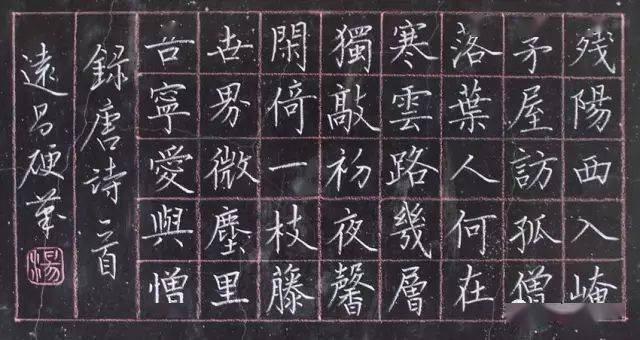 残陽西入崦
矛屋訪孤僧
落葉人何在
寒雲路幾層
獨敲初夜馨
閑倚一枝藤
世界微塵里
吾寧愛與憎
録唐诗一首
遠昌硬筆